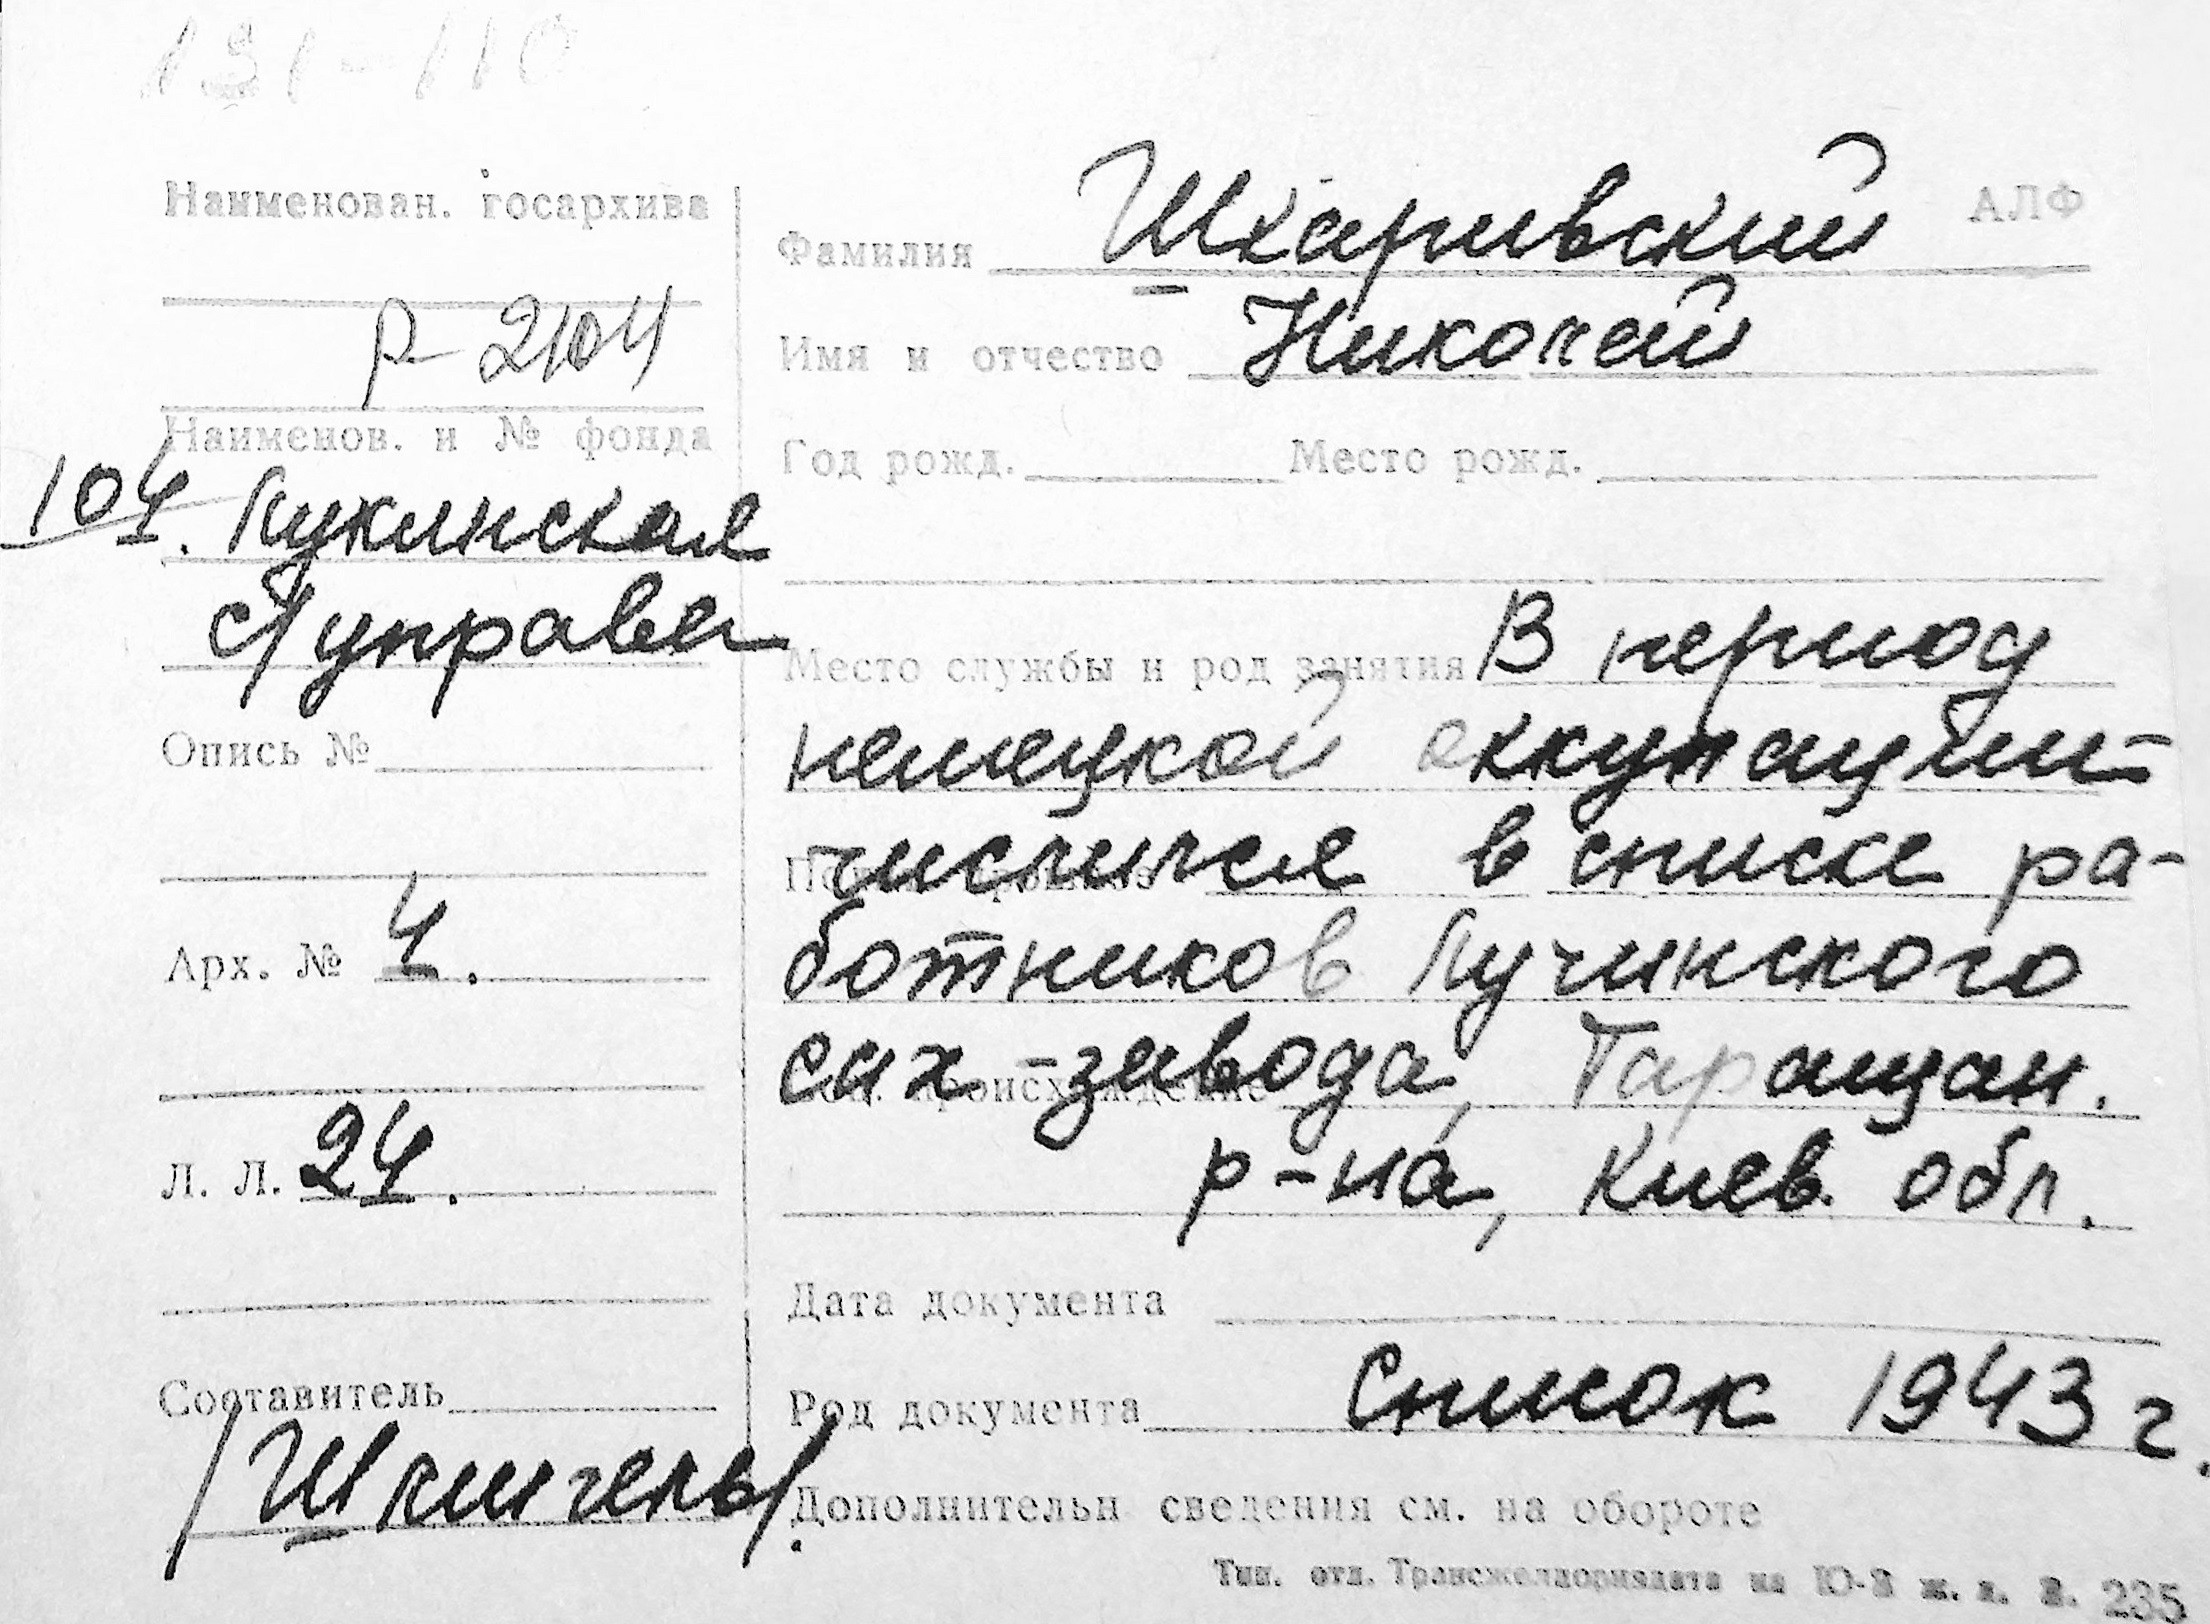 131-110
Наименован. госархива
Р-2104
Наименов. и № фонда
104. Лукинская
с/управа
Опись №
Арх. № 4.
Л. Л. 24.
Составитель
/Шклигель/.
АЛФ
Фамилия Шкаривский
Имя и отчество Николай
Год рожд. Место рожд.
Место службы и род занятия В период
немецкой оккупации
числился в списке ра-
ботников Лучинского
сах-завода, Таращан.
р-на, Киев. обл.
Дата документа
Род документа Список 1943 г.
Дополнительн сведения см. на обороте
Тип. отд. Трансжелдориздата на Ю-З ж. д. З. 235